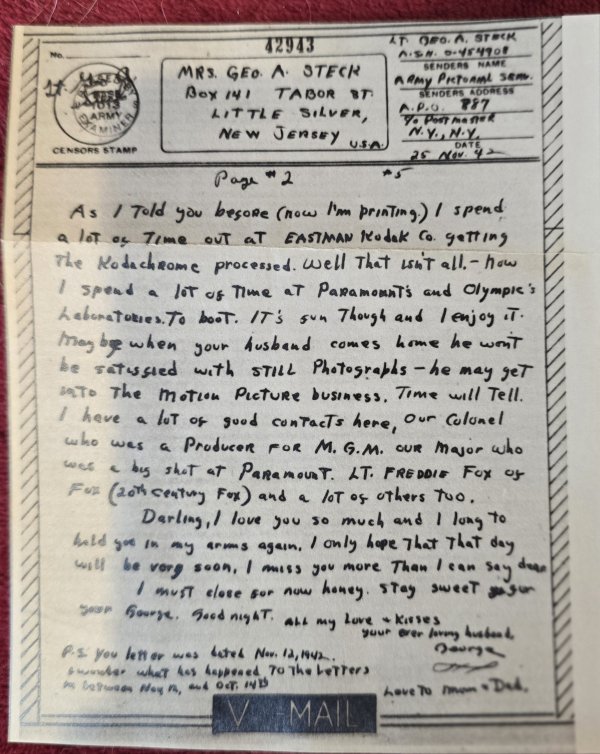 42943
No.
LT. GEO. A. STECK
A.S.N. O-454908
SENDERS NAME
ARMY PICTORIAL SERV.
SENDERS ADDRESS
A.P.O. 887
% POSTMASTER
N.Y., N.Y.
DATE
25 NOV. 42
MRS. GEO. A. STECK
BOX 141 TABOR ST.
LITTLE SILVER,
NEW JERSEY
U.S.A.
ARMY
EXAMINER
CENSORS STAMP
Page #2 #5
As I told you before (now I'm printing.) I spend
a lot of Time out at EASTMAN Kodak Co. getting
The Kodachrome processed. Well That isn't all. - now
I spend a lot of Time at Paramount's and Olympic's
Laboratories. To boot. It's fun Though and I enjoy it.
Maybe when your husband comes home he won't
be satisfied with STILL Photographs - he may get
into The Motion Picture business. Time will Tell.
I have a lot of good contacts here, our Colonel
who was a Producer for M.G.M. our Major who
was a big shot at Paramount. LT. FREDDIE FOX of
Fox (20th Century Fox) and a lot of others Too.
Darling, I love you so much and I long to
hold you in my arms again. I only hope That That day
will be very soon. I miss you more Than I can say dear
I must close for now honey. Stay sweet for
your George. Good night. All my Love + Kisses
your ever loving husband,
George
P.S. You letter was dated Nov. 12, 1942.
I wonder what has happened To The Letters
in between Nov 12, and Oct. 14th
Love To Mom + Dad.
V-MAIL